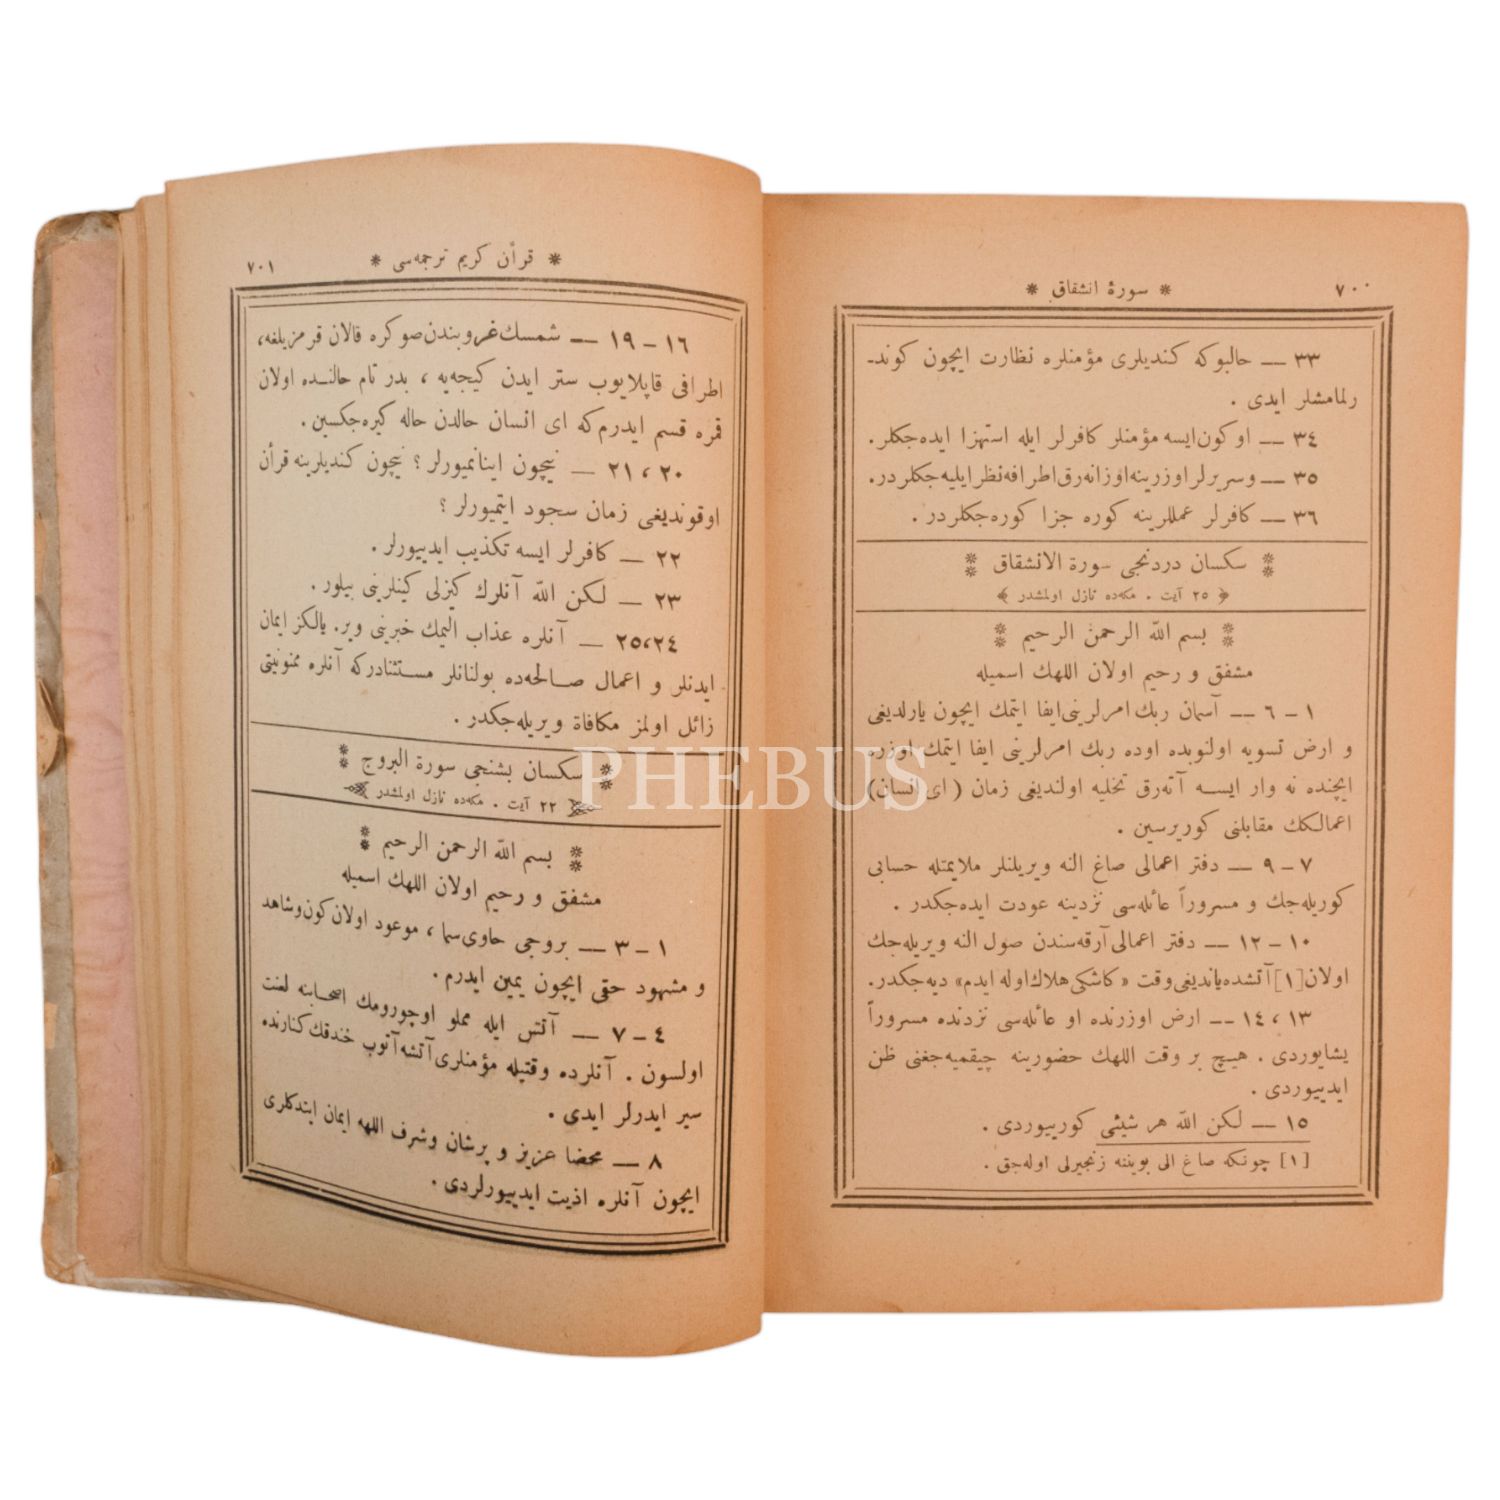 ٧٠٠
* سورهٔ انشقاق *
٣٣ — حالبوكه كنديلرى مؤمنلره نظارت ايچون كوند-
رلمامشلر ايدى .
٣٤ — او كون ايسه مؤمنلر كافرلر ايله استهزا ايده‌جكلر.
٣٥ — وسريرلر اوزرينه اوزانه‌رق اطرافه نظر ايليه‌جكلردر.
٣٦ — كافرلر عمللرينه كوره جزا كوره‌جكلردر .
سكسان دردنجى سورة الانشقاق
﴿ ٢٥ آيت . مكه‌ده نازل اولمشدر ﴾
بسم الله الرحمن الرحيم
مشفق و رحيم اولان اللهك اسميله
١ - ٦ — آسمان ربك امرلرينى ايفا ايتمك ايچون يارلديغى
و ارض تسويه اولنوبده اوده ربك امرلرينى ايفا ايتمك اوزره
ايچنده نه وار ايسه آته‌رق تخليه اولنديغى زمان ( اى انسان )
اعمالكك مقابلنى كوريرسين .
٧ - ٩ — دفتر اعمالى صاغ النه ويريلنلر ملايمتله حسابى
كوريله‌جك و مسروراً عائله‌سى نزدينه عودت ايده‌جكدر .
١٠ - ١٢ — دفتر اعمالى آرقه‌سندن صول النه ويريله‌جك
اولان [١] آتشده ياندیغى وقت « كاشكى هلاك اوله ايدم » ديه‌جكدر.
١٣ ، ١٤ — ارض اوزرنده او عائله‌سى نزدنده مسروراً
يشايوردى . هيچ بر وقت اللهك حضورينه چيقميه‌جغنى ظن
ايدييوردى .
١٥ — لكن الله هر شيئى كورييوردى .
[١] چونكه صاغ الى بويننه زنجيرلى اوله‌جق .
* قرأن كريم ترجمه‌سى *
٧٠١
١٦ - ١٩ — شمسك غروبندن صوكره قالان قرمزيلغه،
اطرافى قاپلايوب ستر ايدن كيجه‌يه ، بدر تام حالنده اولان
قمره قسم ايدرم كه اى انسان حالدن حاله كيره‌جكسين .
٢٠ ، ٢١ — نيچون اينانميورلر ؟ نيچون كنديلرينه قرأن
اوقونديغى زمان سجود ايتميورلر ؟
٢٢ — كافرلر ايسه تكذيب ايدييورلر .
٢٣ — لكن الله آنلرك كيزلى كينلرينى بيلور .
٢٤،٢٥ — آنلره عذاب اليمك خبرينى وير. يالكز ايمان
ايدنلر و اعمال صالحه‌ده بولنانلر مستثنادركه آنلره ممنونيتى
زائل اولمز مكافاة ويريله‌جكدر .
سكسان بشنجى سورة البروج
٢٢ آيت . مكه‌ده نازل اولمشدر
بسم الله الرحمن الرحيم
مشفق و رحيم اولان اللهك اسميله
١ - ٣ — بروجى حاوى سما ، موعود اولان كون وشاهد
و مشهود حقى ايچون يمين ايدرم .
٤ - ٧ — آتش ايله مملو اوچورومك اصحابنه لعنت
اولسون . آنلرده وقتيله مؤمنلرى آتشه آتوب خندقك كنارنده
سير ايدرلر ايدى .
٨ — محضا عزيز و پرشان وشرف اللهه ايمان ايتدكلرى
ايچون آنلره اذيت ايدييورلردى .
PHEBUS